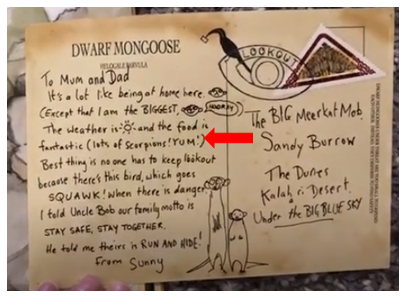 DWARF MONGOOSE
HELOGALE PARVULA
To Mum and Dad
It's a lot like being at home here.
(Except that I am the BIGGEST, HOORAY)
The weather is and the food is
fantastic (lots of scorpions! YUM!)
Best thing is no one has to keep lookout
because there's this bird, which goes
SQUAWK! when there is danger
I told Uncle Bob our family motto is
STAY SAFE, STAY TOGETHER.
He told me theirs is RUN AND HIDE!
From Sunny
LOOKOUT
The BIG Meerkat Mob
Sandy Burrow
The Dunes
Kalahari Desert
Under the BIG BLUE SKY